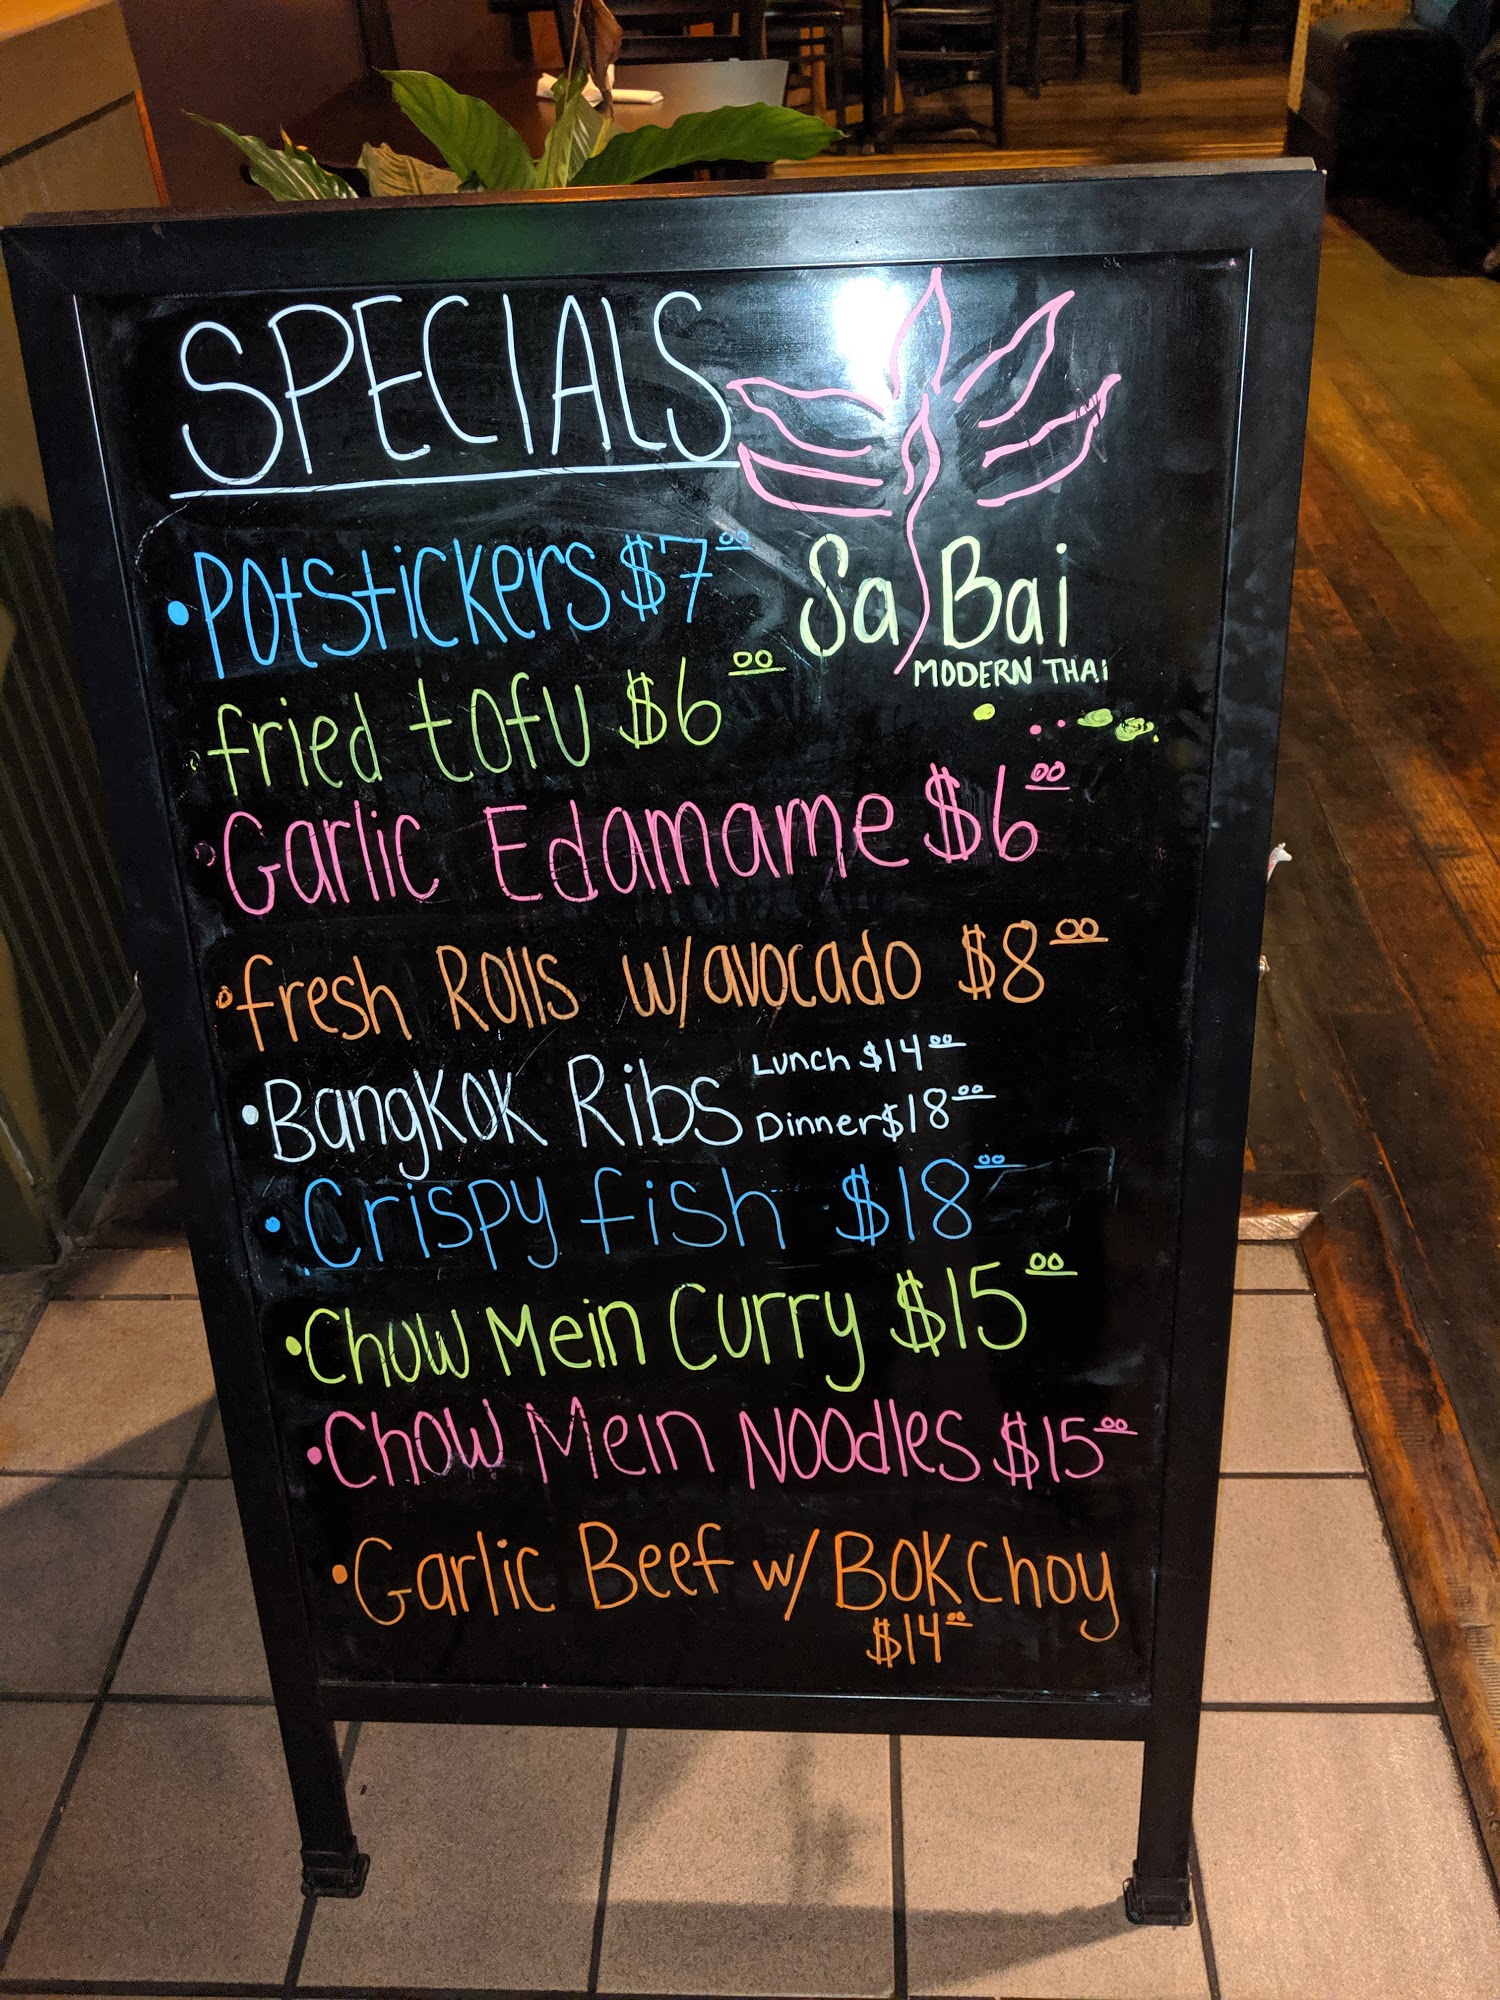 SPECIALS
• Potstickers $7 00
Sa Bai
MODERN THAi
• fried tofu $6 00
• Garlic Edamame $6 00
• fresh Rolls w/avocado $8 00
• Bangkok Ribs Lunch $14 00
Dinner $18 00
• Crispy fish $18 00
• Chow Mein Curry $15 00
• Chow Mein Noodles $15 00
• Garlic Beef w/ BOK Choy
$14 00